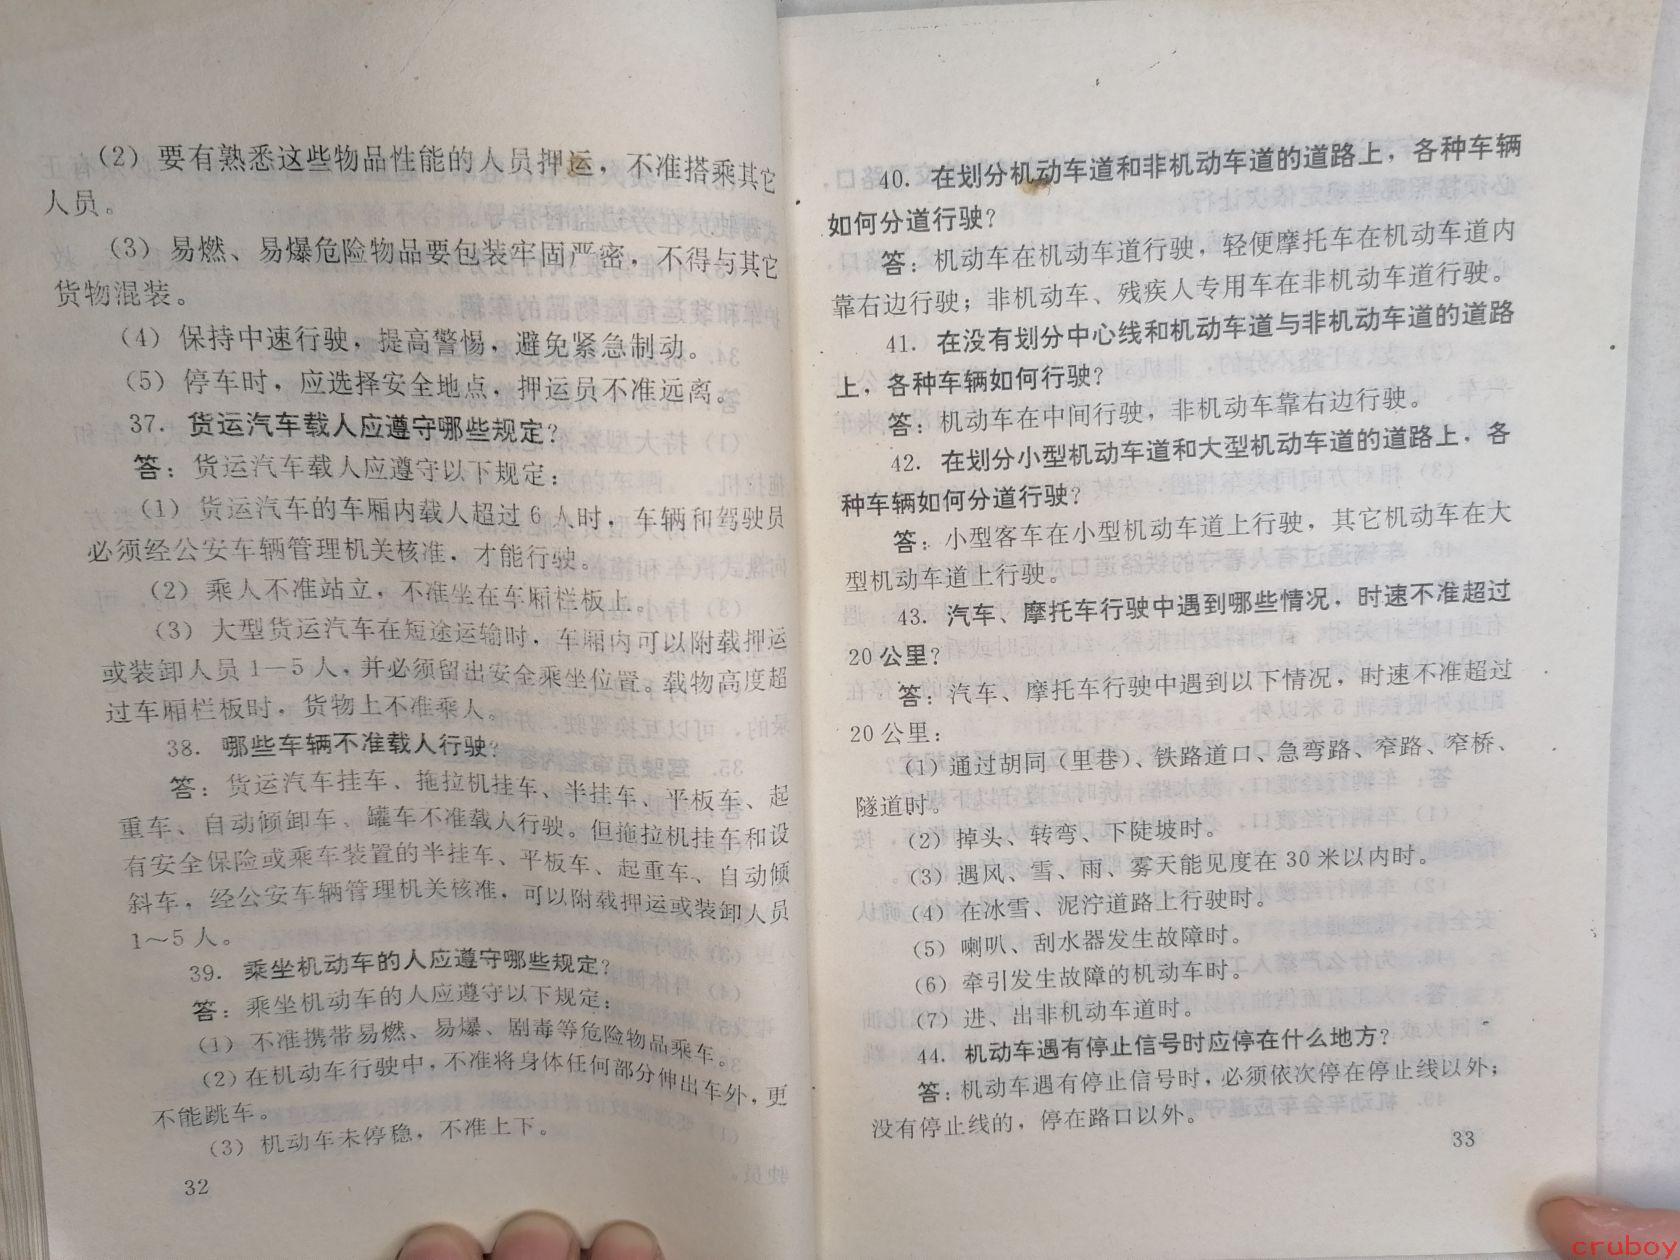 (2) 要有熟悉这些物品性能的人员押运，不准搭乘其它
人员。
(3) 易燃、易爆危险物品要包装牢固严密，不得与其它
货物混装。
(4) 保持中速行驶，提高警惕，避免紧急制动。
(5) 停车时，应选择安全地点，押运员不准远离。
37. 货运汽车载人应遵守哪些规定？
答：货运汽车载人应遵守以下规定：
(1) 货运汽车的车厢内载人超过6人时，车辆和驾驶员
必须经公安车辆管理机关核准，才能行驶。
(2) 乘人不准站立，不准坐在车厢栏板上。
(3) 大型货运汽车在短途运输时，车厢内可以附载押运
或装卸人员1—5人，并必须留出安全乘坐位置。载物高度超
过车厢栏板时，货物上不准乘人。
38. 哪些车辆不准载人行驶？
答：货运汽车挂车、拖拉机挂车、半挂车、平板车、起
重车、自动倾卸车、罐车不准载人行驶。但拖拉机挂车和设
有安全保险或乘车装置的半挂车、平板车、起重车、自动倾
斜车，经公安车辆管理机关核准，可以附载押运或装卸人员
1～5人。
39. 乘坐机动车的人应遵守哪些规定？
答：乘坐机动车的人应遵守以下规定：
(1) 不准携带易燃、易爆、剧毒等危险物品乘车。
(2) 在机动车行驶中，不准将身体任何部分伸出车外，更
不能跳车。
(3) 机动车未停稳，不准上下。
32
40. 在划分机动车道和非机动车道的道路上，各种车辆
如何分道行驶？
答：机动车在机动车道行驶，轻便摩托车在机动车道内
靠右边行驶；非机动车、残疾人专用车在非机动车道行驶。
41. 在没有划分中心线和机动车道与非机动车道的道路
上，各种车辆如何行驶？
答：机动车在中间行驶，非机动车靠右边行驶。
42. 在划分小型机动车道和大型机动车道的道路上，各
种车辆如何分道行驶？
答：小型客车在小型机动车道上行驶，其它机动车在大
型机动车道上行驶。
43. 汽车、摩托车行驶中遇到哪些情况，时速不准超过
20公里？
答：汽车、摩托车行驶中遇到以下情况，时速不准超过
20公里：
(1) 通过胡同（里巷）、铁路道口、急弯路、窄路、窄桥、
隧道时。
(2) 掉头、转弯、下陡坡时。
(3) 遇风、雪、雨、雾天能见度在30米以内时。
(4) 在冰雪、泥泞道路上行驶时。
(5) 喇叭、刮水器发生故障时。
(6) 牵引发生故障的机动车时。
(7) 进、出非机动车道时。
44. 机动车遇有停止信号时应停在什么地方？
答：机动车遇有停止信号时，必须依次停在停止线以外；
没有停止线的，停在路口以外。
33
cruboy